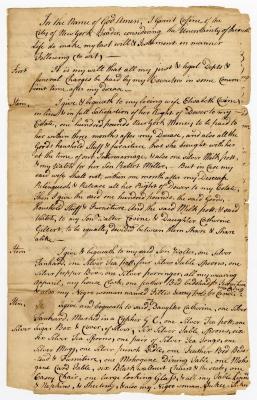 In the Name of God Amen, I Gerrit Cosine of the
City of New York Trader, considering the Uncertainty of human
Life do make my last will & Testament in manner
Following (to wit)
First It is my will that all my just & legal Debts &
Funeral Charges be paid by my Executors in some Conven-
ient time after my decease
Item I give & bequeath to my loving wife Elizabeth Cosine,
in lieu & in full satisfaction of her Right of Dower to my
Estate, one hundred pounds New York Money to be paid to
her within three months after my Decease, and also all the
Goods household Stuff & furniture, that she brought with her
at the time of our Intermarriage Unless one Silver Milk pott,
& my watch for her Son Walter. But in case my
said wife shall not, within one month after my Decease
Relinquish & Release all her Right of Dower to my Estate;
Then I give the said one hundred pounds, the said Goods,
household Stuff & Furniture, and the said Milk pott & said
watch, to my Son Walter Cosine & Daughter Catherine
Gilbert to be equally divided between them Share & Share
alike.
Item I give & bequeath to my said Son Walter, one Silver
Tankard, one Silver Tea pott, four Silver Table Spoons, one
Silver Pepper Box, one Silver porringer, all my wearing
apparel, my Cane, one feather Bed
Negro woman named
Item I give and bequeath to my said Daughter Catherine, one Silver
Tankard, Marked in a Cypher G C, one Silver Tea pott, one
Silver Sugar Box & Cover of silver, Six Silver Table Spoons, six
Silver Tea Spoons, one pair of Silver Tea Tongs, one
Silver Mugg, one Silver Punch Ladle, one Feather Bed Bed-
stead & Furniture, one Mahogany Dining Table, one Maho-
gany Card Table, six Black Walnut Chairs & the
Easy Chair, one large Looking Glass,
& Napkins,